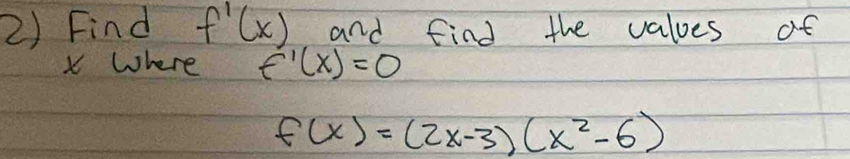 2) Find f'(x) and find the values of
x where f'(x)=0
f(x)=(2x-3)(x²-6)